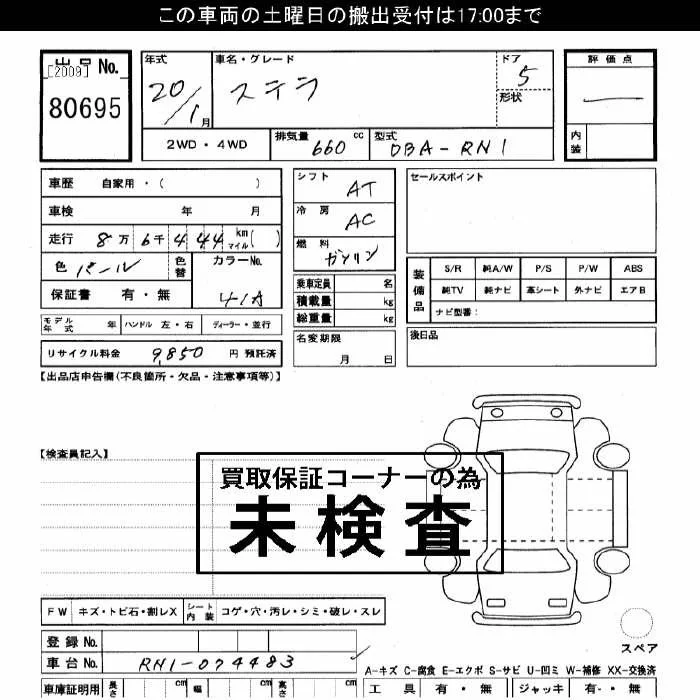 この車両の土曜日の搬出受付は17:00まで
出品 No.
[2009]
80695
年式
20/1月
車名・グレード
ステラ
ドア
5
形状
評価点
内装
2WD・4WD
排気量
660 cc
型式
DBA-RN1
車歴 自家用・( )
車検 年 月
走行 8万6千444 km マイル( )
色 パール
色替
カラーNo.
41A
保証書 有・無
モデル年式 年
ハンドル 左・右
ディーラー・並行
リサイクル料金 9,850 円 預託済
シフト AT
冷房 AC
燃料 ガソリン
乗車定員 名
積載量 kg
総重量 kg
名変期限
月 日
セールスポイント
装備品
S/R 純A/W P/S P/W ABS
純TV 純ナビ 革シート 外ナビ エアB
ナビ型番:
後日品
【出品店申告欄(不良箇所・欠品・注意事項等)】
【検査員記入】
買取保証コーナーの為
未検査
FW キズ・トビ石・割レX
シート内装 コゲ・穴・汚レ・シミ・破レ・スレ
登録 No.
車台 No. RN1-074483
スペア
A-キズ C-腐食 E-エクボ S-サビ U-凹ミ W-補修 XX-交換済
車庫証明用 長さ cm 幅 cm 高さ cm
工具 有・無 ジャッキ 有・無